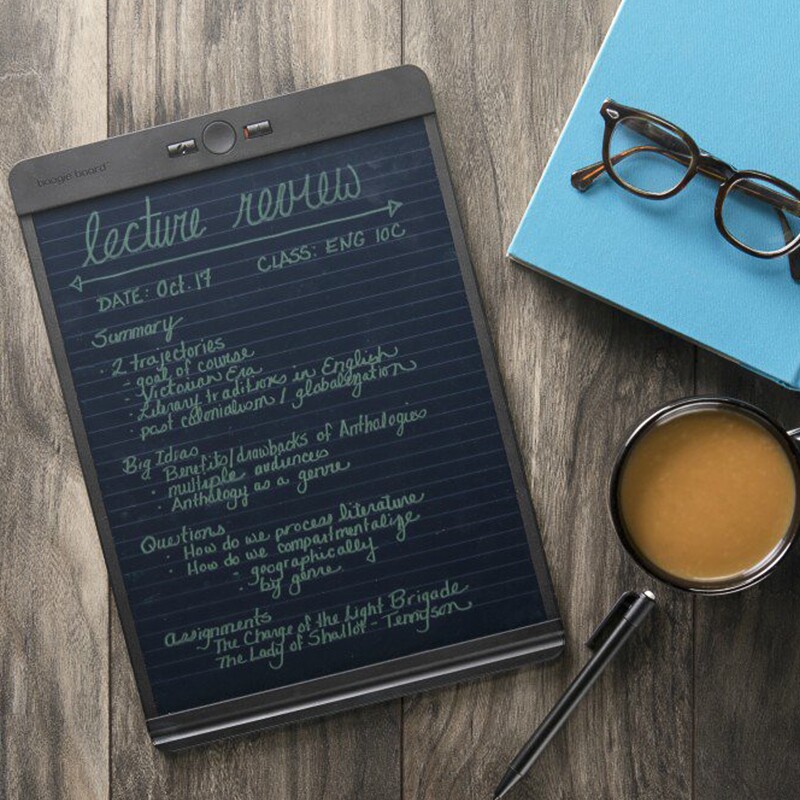 boogie board
lecture review
DATE: Oct. 17 CLASS: ENG 10C
Summary
· 2 trajectories
- goal of course
· Victorian Era
· Literary traditions in English
· past colonialism / globalization
Big Ideas
· Benefits/drawbacks of Anthologies
· multiple audiences
· Anthology as a genre
Questions
· How do we process literature
· How do we compartmentalize
- geographically
- by genre
assignments
The Charge of the Light Brigade
The Lady of Shallot - Tennyson